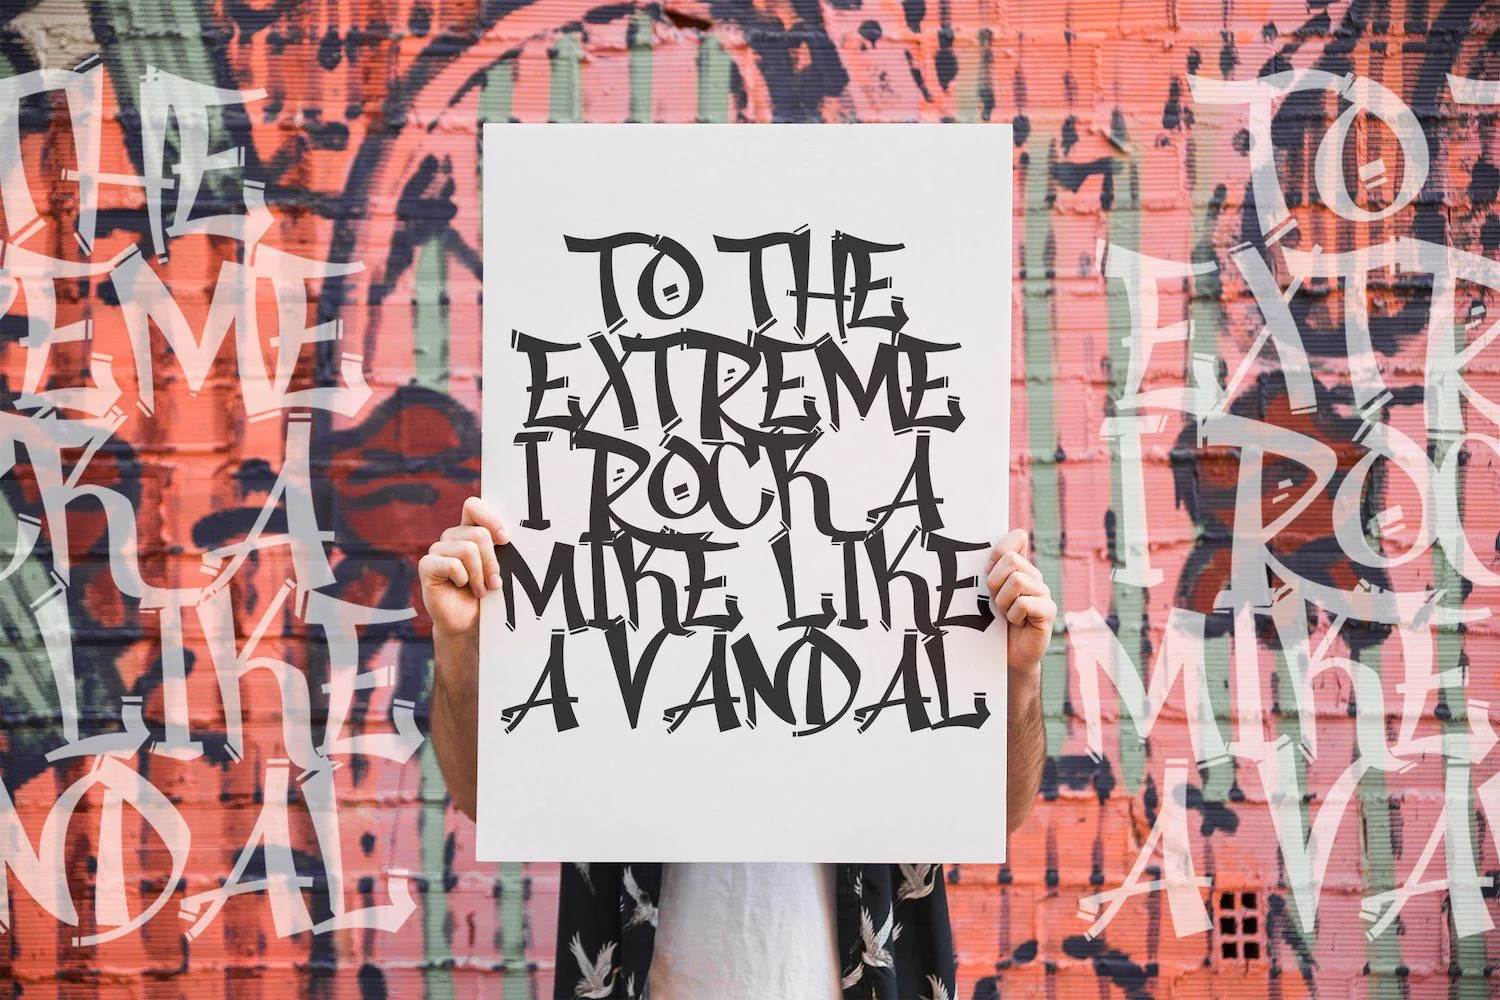 TO THE
EXTREME
I ROCK A
MIKE LIKE
A VANDAL
THE
EME
K A
LIKE
NDAL
TO T
EXTR
I ROC
MIKE
A VA